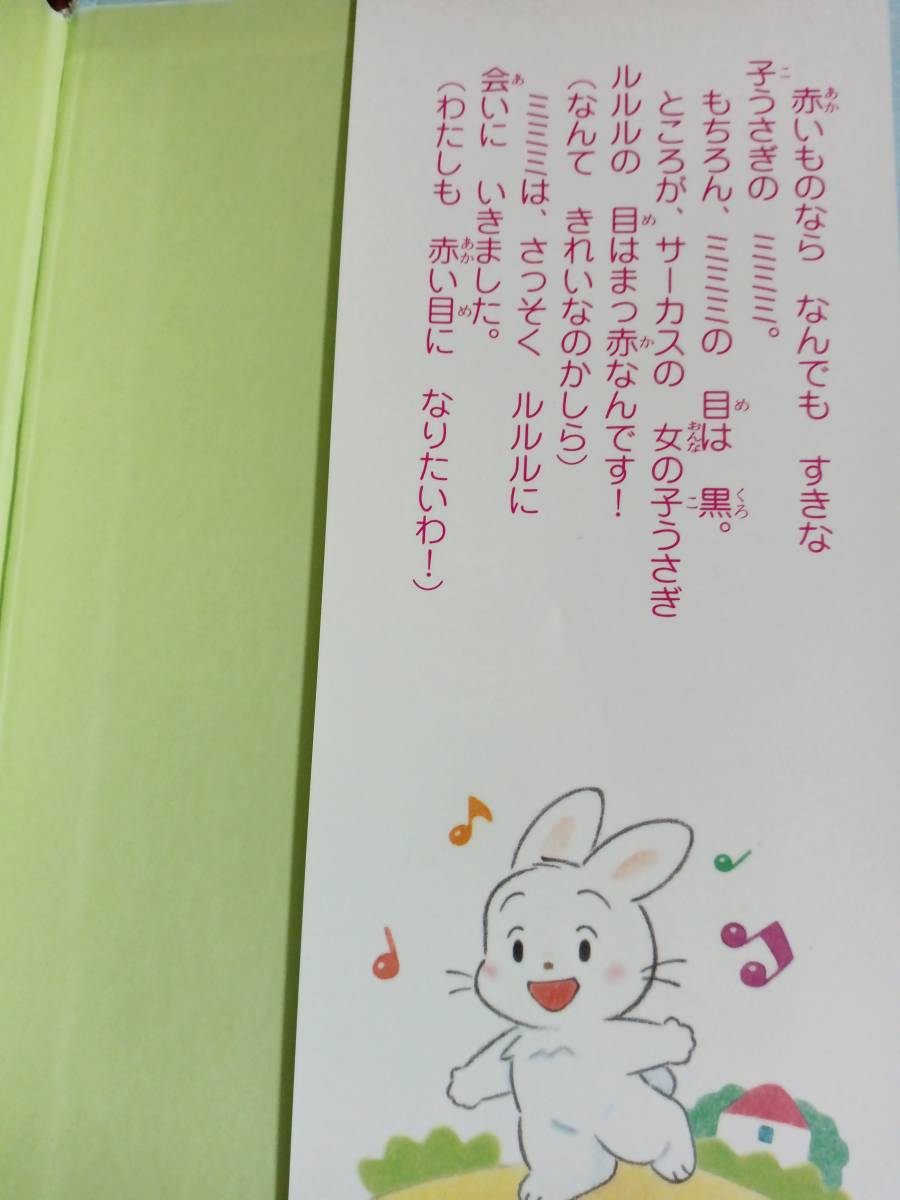 赤いものなら　なんでも　すきな
子うさぎの　ミミミミ。
もちろん、ミミミミの　目は　黒。
ところが、サーカスの　女の子うさぎ
ルルルの　目はまっ赤なんです！
（なんて　きれいなのかしら）
ミミミミは、さっそく　ルルルに
会いに　いきました。
（わたしも　赤い目に　なりたいわ！）